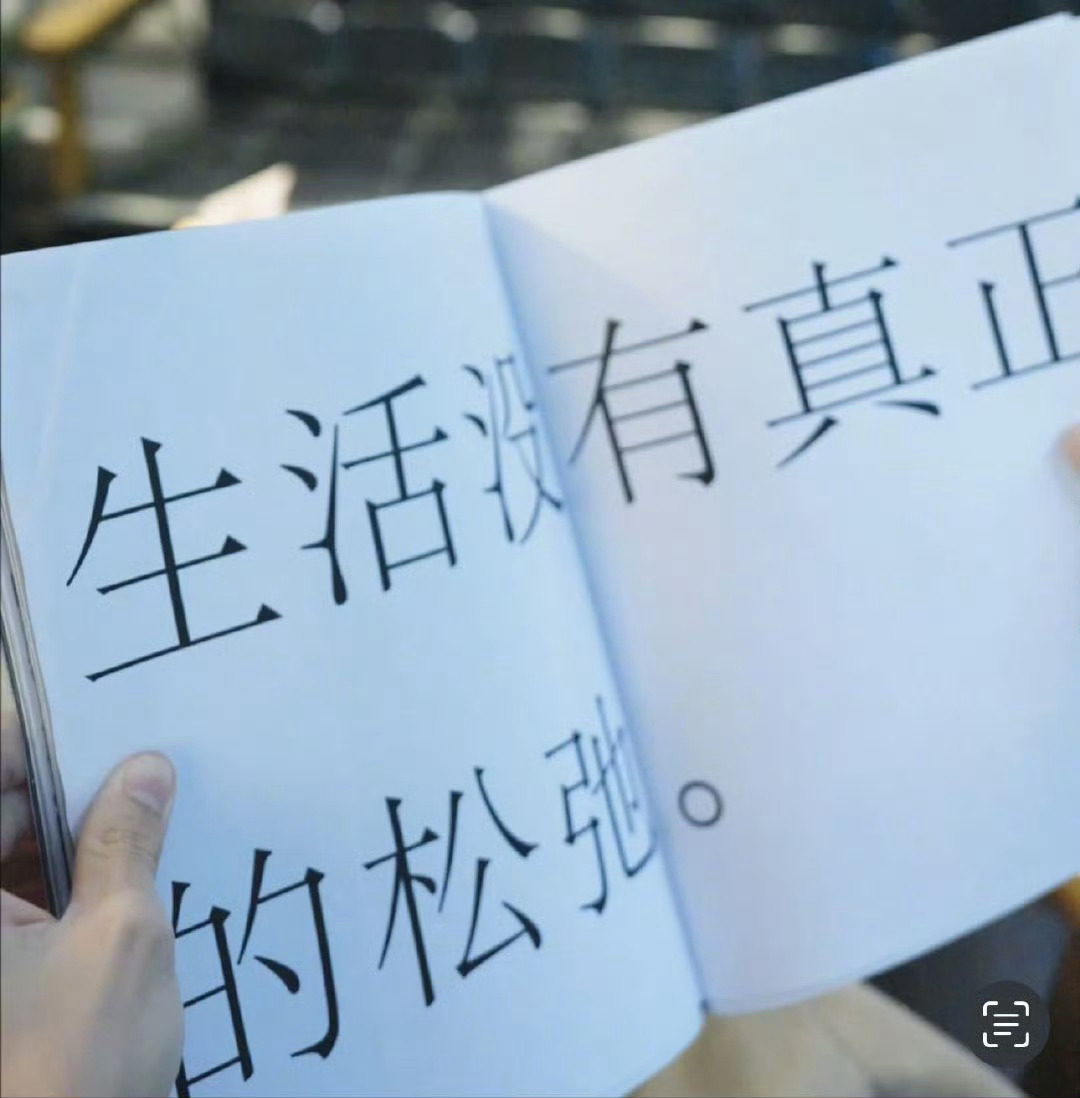 生活没有真正
的松弛。